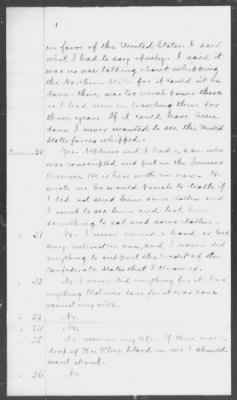 in favor of the United States. I said
what I had to say openly. I said it
was no use talking about whipping
the Northern States for it could not be
done. there was too much power there
as I had seen in traveling there for
those years. If it could have been
done I never wanted to see the United
States forces whipped.
30 Yes. Nephews and I had a son who
was conscripted and put in the
Reserves. He is here with me now. He
wrote me he would starve to death if
I did not send him some clothes and
I went to see him and took him
something to eat and some clothes.
31 No. I never owned a bond or had
any interest in one, and I never did
anything to support the credit of the
Confederate States that I know of.
32 No. I never did anything for it. If
anything that was done for it was done
against my will.
33 No.
34 No.
35 No never in my life. If there was a
drop of the blood in me I should
want
36 No.